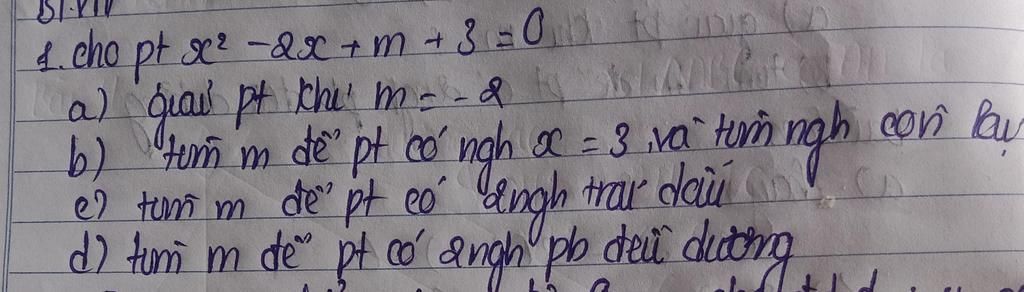 1. cho pt x² - 2x + m + 3 = 0
a) giải pt khi m = -2
b) tìm m để pt có ngh x = 3 và tìm ngh còn lại
c) tìm m để pt có 2ngh trái dấu
d) tìm m để pt có 2ngh pb đều dương